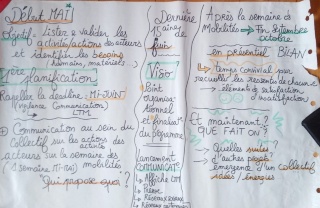 Début MAI
Objectif: Lister & valider les
activités/actions des acteurs
et identifier les besoins
(humains, matériels)
planification
Rappeler la deadline: MI-JUIN
LTM
⊕ Communication au sein du
Collectif sur les actions des
acteurs sur la semaine des
mobilités
Qui propose quoi?
Dernière
15aine de
Juin
Visio
Point
organisa-
tionnel
Lancement
COMMUNICATION
Affiche LTM
Presse
Réseaux sociaux
Après la semaine de
Mobilités → Fin Septembre
octobre
en présentiel BILAN
↳ temps convivial pour
recueillir les ressentis de chacun
↳ éléments de satisfaction
d'insatisfaction
Et maintenant?
QUE FAIT ON?
↳ Quelles suites?
↳ d'autres projets
émergent d'un collectif
idées / énergies